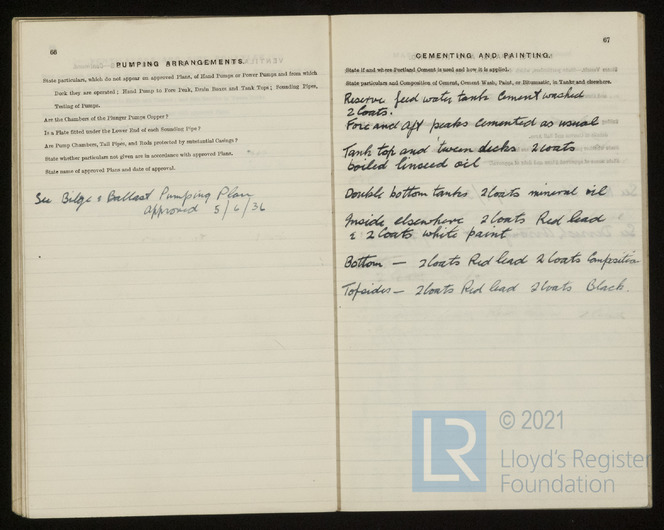 66
PUMPING ARRANGEMENTS.
State particulars, which do not appear on approved Plans, of Hand Pumps or Power Pumps and from which
Deck they are operated; Hand Pump to Fore Peak, Drain Boxes and Tank Tops; Sounding Pipes,
Testing of Pumps.
Are the Chambers of the Plunger Pumps Copper?
Is a Plate fitted under the Lower End of each Sounding Pipe?
Are Pump Chambers, Tail Pipes, and Rods protected by substantial Casings?
State whether particulars not given are in accordance with approved Plans,
State name of approved Plans and date of approval.
See Bilge & Ballast Pumping Plan
approved 5/6/36
67
CEMENTING AND PAINTING.
State if and where Portland Cement is used and how it is applied.
State particulars and Composition of Cement, Cement Wash, Paint, or Bitumastic, in Tanks and elsewhere.
Reserve feed water tanks Cement washed
2 Coats.
Fore and aft peaks cemented as usual
Tank top and 'tween decks 2 coats
boiled linseed oil
Double bottom tanks 2 Coats mineral oil
Inside elsewhere 2 Coats Red lead
& 2 Coats white paint
Bottom — 2 Coats Red lead 2 Coats Composition
Topsides — 2 Coats Red lead 2 Coats Black.
LR
© 2021
Lloyd's Register
Foundation